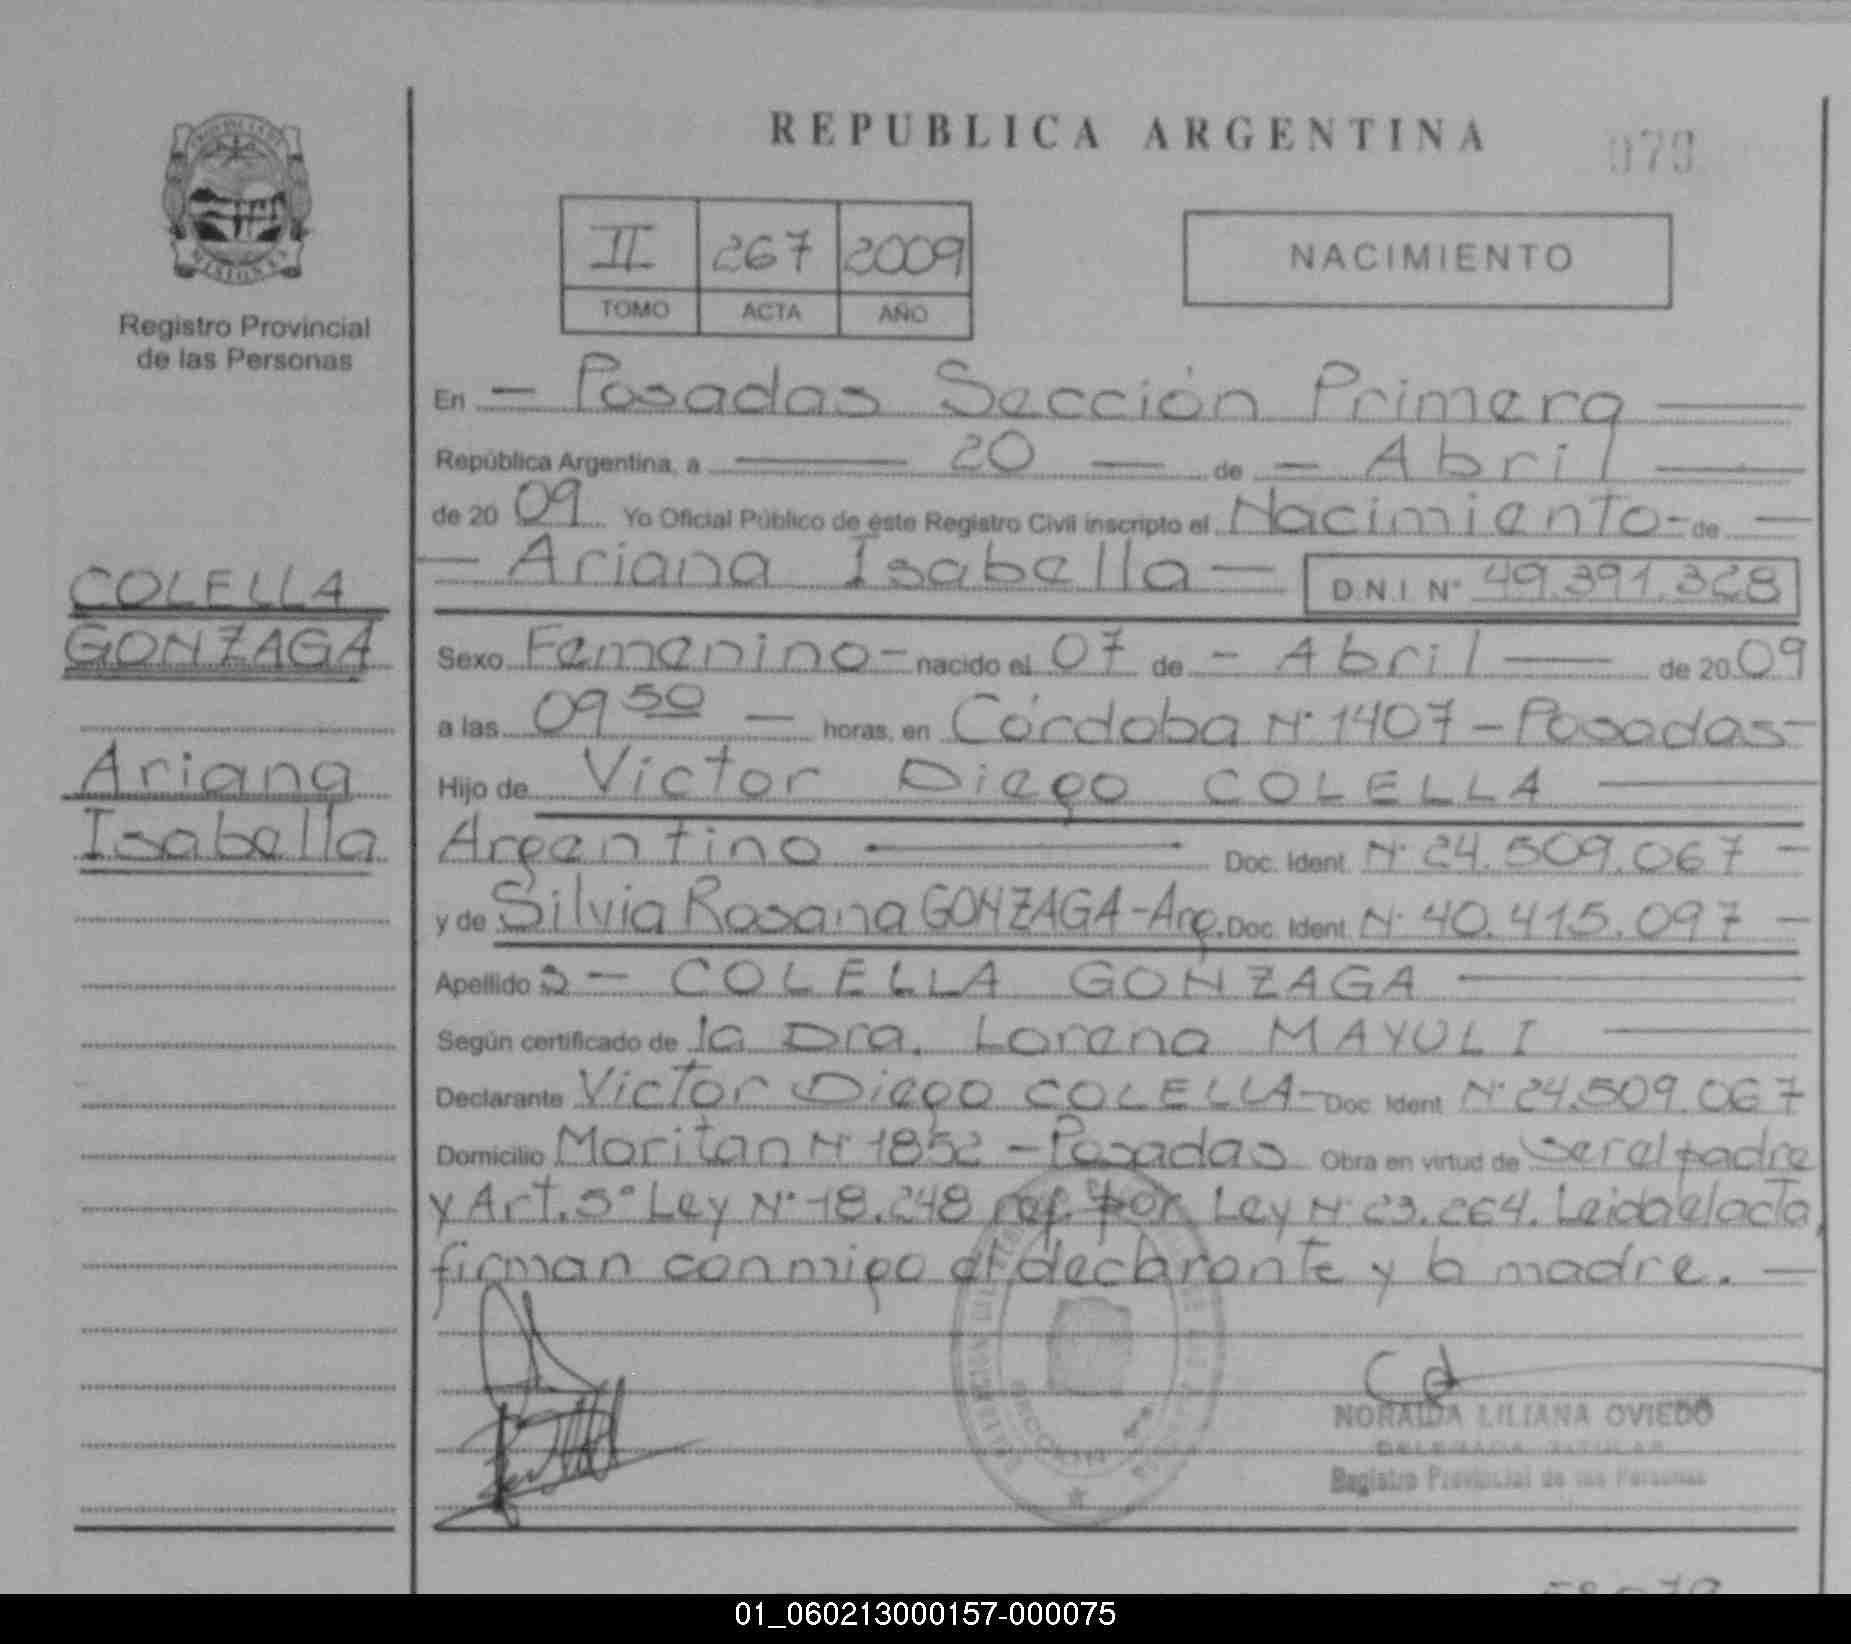 REPUBLICA ARGENTINA
079
PROVINCIA DE
MISIONES
Registro Provincial
de las Personas
II 267 2009
TOMO ACTA AÑO
NACIMIENTO
En - Posadas Sección Primera
República Argentina, a 20 - de - Abril
de 20 09 Yo Oficial Público de éste Registro Civil inscripto el Nacimiento - de
- Ariana Isabella - D.N.I N° 49.391.328
COLELLA
GONZAGA
Ariana
Isabella
Sexo Femenino - nacido el 07 de - Abril de 20 09
a las 09 50 - horas, en Córdoba N° 1407 - Posadas -
Hijo de Victor Diego COLELLA
Argentino Doc. Ident. N° 24.509.067 -
y de Silvia Rosana GONZAGA - Arg. Doc. Ident N° 40.415.097 -
Apellido s - COLELLA GONZAGA
Según certificado de la Dra. Lorena MAYULI
Declarante Victor Diego COLELLA - Doc Ident N° 24.509.067
Domicilio Moritan N° 1852 - Posadas Obra en virtud de ser el padre
y Art. 5° Ley N° 18.248 ref. por Ley N° 23.264. Leida el acta,
firman conmigo el declarante y la madre. -
NORAIDA LILIANA OVIEDO
DELEGADA TITULAR
Registro Provincial de las Personas
01_060213000157-000075